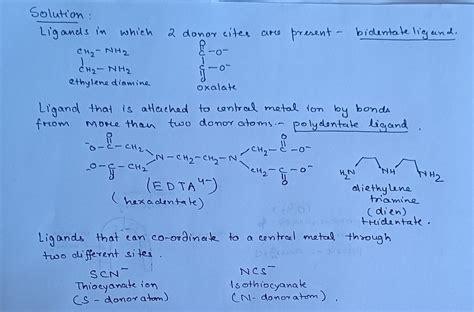 Solution:
Ligands in which 2 donor sites are present - bidentate ligand.
CH2 - NH2
CH2 - NH2
ethylene diamine
O
C - O⁻
C - O⁻
O
oxalate
Ligand that is attached to central metal ion by bonds
from more than two donor atoms - polydentate ligand
O
⁻O - C - CH2
⁻O - C - CH2
O
N - CH2 - CH2 - N
O
CH2 - C - O⁻
CH2 - C - O⁻
O
(EDTA⁴⁻)
(hexadentate)
H2N NH NH2
diethylene
triamine
(dien)
tridentate.
Ligands that can co-ordinate to a central metal through
two different sites.
SCN⁻
Thiocyanate ion
(S - donor atom)
NCS⁻
Isothiocyanate
(N - donor atom).